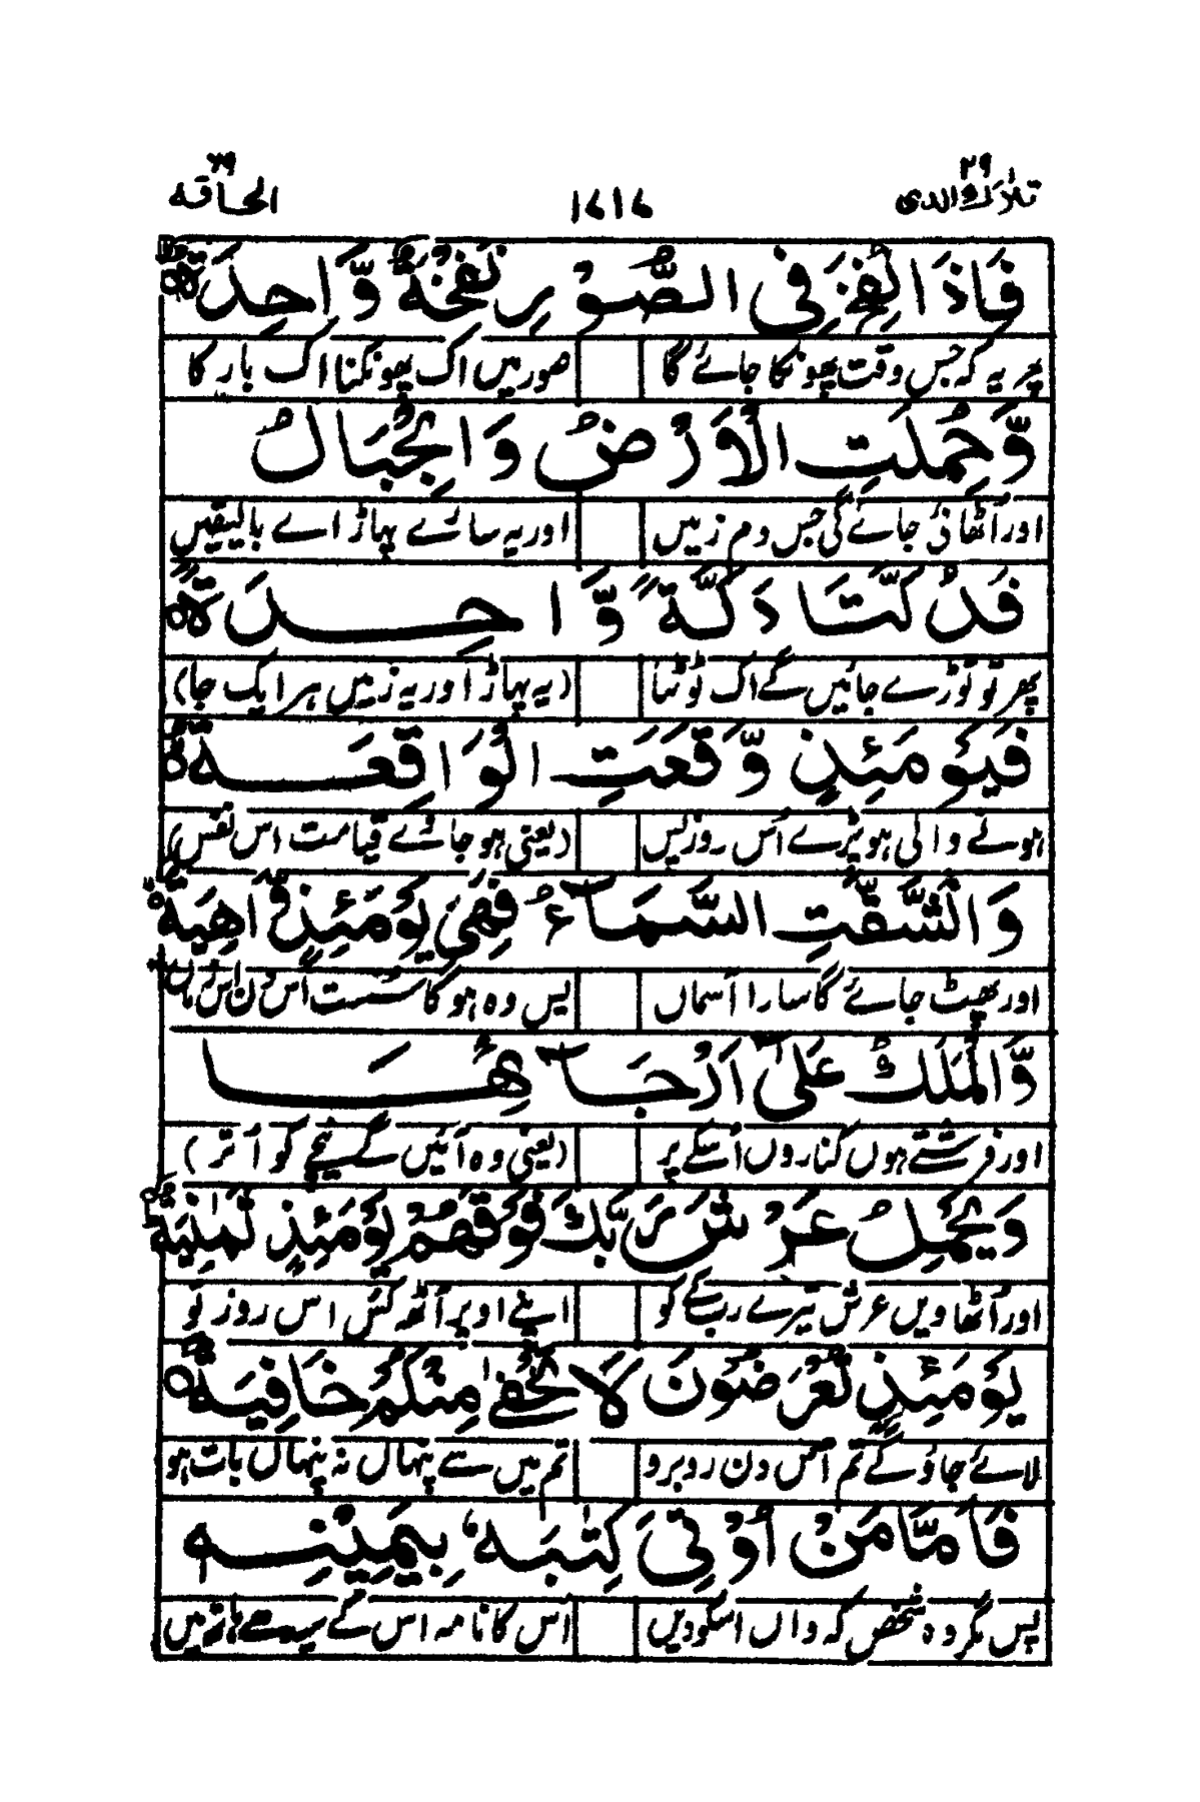 تبارك الذی ۲۹ ۱۷۱۷ الحاقه ۶۹
فَاِذَا نُفِخَ فِی الصُّوْرِ نَفْخَةٌ وَّاحِدَةٌ ۙ۝
پھر یہ کہ جس وقت پھونکا جائے گا صور میں اک پھونکنا اک بار کا
وَّحُمِلَتِ الْاَرْضُ وَالْجِبَالُ
اور اُٹھائی جائے گی جس دم زمیں اور یہ سارے پہاڑ اے بالیقیں
فَدُكَّتَا دَكَّةً وَّاحِدَةً ۙ۝
پھر تو توڑے جائیں گے اک ٹوٹنا (یہ پہاڑ اور یہ زمیں ہر ایک جا)
فَیَوْمَئِذٍ وَّقَعَتِ الْوَاقِعَةُ ۙ۝
ہونے والی ہو پڑے اُس روز پس (یعنی ہو جائے قیامت اس نفس)
وَانْشَقَّتِ السَّمَآءُ فَهِیَ یَوْمَئِذٍ وَّاهِیَةٌ ۙ۝
اور پھٹ جائے گا سارا آسماں پس وہ ہو گا سُست اُس دن اس زماں
وَّالْمَلَكُ عَلٰۤی اَرْجَآئِهَا
اور فرشتے ہوں کناروں اُسکے پر (یعنی وہ آئیں گے نیچے کو اُتر)
وَیَحْمِلُ عَرْشَ رَبِّكَ فَوْقَهُمْ یَوْمَئِذٍ ثَمٰنِیَةٌ ؕ۝
اور اُٹھاویں عرش تیرے رب کے کو اپنے اوپر آٹھ کس اس روز تو
یَوْمَئِذٍ تُعْرَضُوْنَ لَا تَخْفٰی مِنْكُمْ خَافِیَةٌ ۝
لائے جاؤ گے تم اُس دن روبرو تم میں سے پنہاں نہ پنہاں بات ہو
فَاَمَّا مَنْ اُوْتِیَ كِتٰبَهٗ بِیَمِیْنِهٖ
پس مگر وہ شخص کہ واں اسکو دیں اس کا نامہ اس کے سیدھے ہاتھ میں